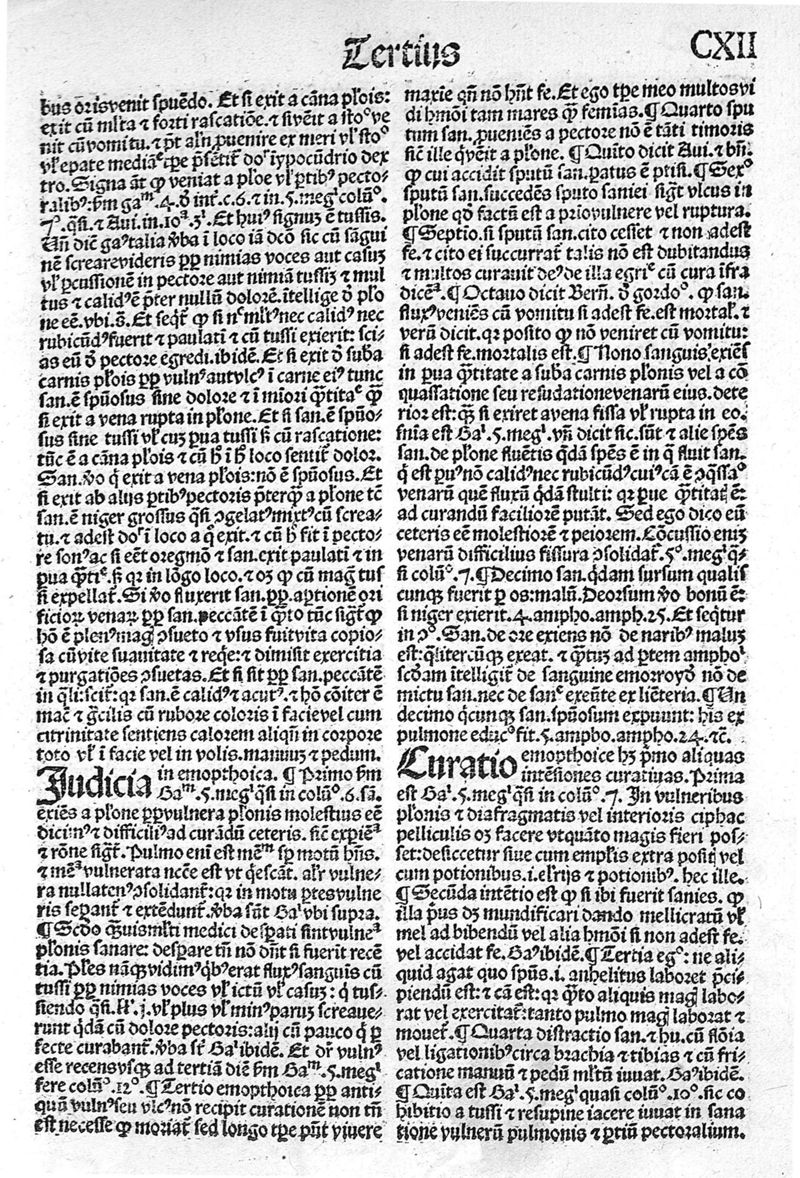 Tertius
CXII
bus oris venit spuēdo. Et si exit a cāna pl'ois:
exit cū ml'ta ⁊ forti rascatiōe. ⁊ si vēit a sto° ve
nit cū vomitu. ⁊ p̄t al'r ꝓuenire ex meri vl' sto°
tro. Signa āt ꝙ veniat a pl'oe vl' ꝑtibꝰ pecto-
ralibꝰ: ẜm gaᵐ. 4. ð int̄. c. 6. ⁊ in .5. megˡ colūᵒ.
7ᵒ. qͣsi. ⁊ Aui. in. 10ᵃ. 3ˡ. Et huiꝰ signuꝫ ē tussis.
Vn̄ diē gaˡ talia v̄ba ī loco iā dcō sic cū sāgui
nē screare videris ꝓpꝑ nimias voces aut casuꝫ
vl' ꝑcussionē in pectore aut nimiā tussiꝫ ⁊ mul
tus ⁊ calidꝰ ē p̄ter nullū dolorē. ītellige ð pl'o
ne eē. vbi. s̄. Et seqͥt̄ ꝙ si nᶜ ml'tꝰ nec calidꝰ nec
rubicūdꝰ fuerit ⁊ paulati ⁊ cū tussi exierit: sci-
as eū ð pectore egredi. ibidē. Et si exit ð suba
carnis pl'ois ꝓpꝑ vulnꝰ aut vlcꝰ ī carne eiꝰ tunc
san. ē spūosus sine dolore ⁊ ī mīori q̄titaᵉ ꝙ
si exit a vena rupta in pl'one. Et si san. ē spūo-
sus sine tussi vl' cuꝫ ꝑua tussi sꝫ cū rascatione:
tūc ē a cāna pl'ois ⁊ cū h̄ ī h̄ loco sentit̄ dolor.
San. v̄o q̄ exit a vena pl'ois: nō ē spūosus. Et
si exit ab alijs ꝑtibꝰ pectoris p̄terꝙ a pl'one tc̄
san. ē niger grossus qͣsi ꝯgelatꝰ mixtꝰ cū screa-
tu. ⁊ adest doˡ ī loco a q̄ exit. ⁊ cū h̄ fit ī pecto-
re sonꝰ ac si eēt oregmō ⁊ san. exit paulati ⁊ in
ꝑua q̄tiᵉ. sꝫ qꝛ in lōgo loco. ⁊ oꝫ ꝙ cū magͣ tus
si expellat̄. Si v̄o fluxerit san. ꝓpꝑ. aꝑtionē ori
ficioꝝ venaꝝ ꝓpꝑ san. peccātē ī q̄to tūc sigt̄ ꝙ
hō ē plenꝰ magͣ ꝯsueto ⁊ vsus fuit vita copio-
sa cū vite suauitate ⁊ reqͥe: ⁊ dimisit exercitia
⁊ purgatiōes ꝯsuetas. Et si sit ꝓpꝑ san. peccātē
in qͣli: scit̄: qꝛ san. ē calidꝰ ⁊ acutꝰ. ⁊ hō cōiter ē
mac̄ ⁊ gͣcilis cū rubore coloris ī facie vel cum
citrinitate sentiens calorem aliqn̄ in corpore
toto vl' ī facie vel in volis. manuuꝫ ⁊ pedum.
Judicia in emopthoica. ¶ Primo ẜm
Gaᵐ. 5. megˡ qͣsi in colūᵒ. 6. sā.
exiēs a pl'one ꝓpꝑ vulnera pl'onis molestius eē
dicimꝰ ⁊ difficiliꝰ ad curādū ceteris. sic̄ expiēᵃ
⁊ rōne sigt̄. Pulmo eni est mēᵐ sꝑ motū hn̄s.
⁊ mēᵃ vulnerata ncc̄e est vt qͥescāt. al'r vulne-
ra nullatenꝰ ꝯsolidant̄: qꝛ in motu ꝑtes vulne
ris separant̄ ⁊ extēdunt̄. v̄ba sūt Gaˡ vbi supra.
¶ Scḋo qͣuis ml'ti medici desꝑati sint vulneᵃ
pl'onis sanare: desꝑare tn̄ nō dn̄t si fuerit recē
tia. Pl'es nāqꝫ vidimꝰ qͥbꝰ erat fluxꝰ sanguis cū
tussi ꝓpꝑ nimias voces vl' ictū vl' casuꝫ: q̄ tus-
siendo qͣsi. lł. j. vl' plus vl' minꝰ paruꝫ screaue-
runt qͥdā cū dolore pectoris: alij cū pauco q̄ ꝑ
fecte curabant̄. v̄ba st̄ Gaˡ ibidē. Et dr̄ vulnꝰ
esse recens vsqꝫ ad tertiā diē ẜm Gaᵐ. 5. megˡ
fere colūᵒ. 12ᵒ. ¶ Tertio emopthoica ꝓpꝑ anti-
quū vulnꝰ seu vlcꝰ nō recipit curationē non tn̄
est necesse ꝙ moriat̄ sed longo tꝑe pn̄t viuere
maxie qn̄ nō hn̄t fe. Et ego tꝑe meo multos vi
di hmōi tam mares ꝙ femias. ¶ Quarto spu
tum san. ꝓueniēs a pectore nō ē tāti timoris
sic̄ ille q̄ vēit a pl'one. ¶ Quīto dicit Aui. ⁊ bn̄.
ꝙ cui accidit sputū san. ꝑatus ē ptisi. ¶ Sexᵒ
sputū san. succedēs sputo saniei sigt̄ vlcus in
pl'one qḋ factū est a prio vulnere vel ruptura.
¶ Septio. si sputū san. cito cesset ⁊ non adest
fe. ⁊ cito ei succurrat̄ talis nō est dubitanduꝫ
⁊ multos curauit deꝰ de illa egriᵉ cū cura īfra
dicēᵃ. ¶ Octauo dicit Bern̄. ð gordoᵒ. ꝙ san.
fluxꝰ veniēs cū vomitu si adest fe. est mortal'. ⁊
verū dicit. qꝛ posito ꝙ nō veniret cū vomitu:
si adest fe. mortalis est. ¶ Nono sanguis exiēs
in ꝑua q̄titate a suba carnis pl'onis vel a cō
quassatione seu resudatione venarū eius. dete
rior est: qͣꝫ si exiret a vena fissa vl' rupta in eo.
sn̄ia est Gaˡ. 5. megˡ. vn̄ dicit sic. sūt ⁊ alie spēs
san. de pl'one fluētis qͣdā spēs ē in q̄ fluit san.
q̄ est ꝑuꝰ nō calidꝰ nec rubicūdꝰ cuiꝰ cā ē ꝯqͣssaᵒ
venarū quē fluxū qͥdā stulti: qꝛ ꝑue q̄titatꝭ ē:
ad curandū faciliorē putāt. Sed ego dico eū
ceteris eē molestiorē ⁊ peiorem. Cōcussio eniꝫ
venarū difficilius fissura ꝯsolidat̄. 5ᵒ. megˡ qͣ-
si colūᵒ. 7. ¶ Decimo san. qͥdam sursum qualis
cunqꝫ fuerit ꝑ os: malū. Deorsum v̄o bonū ē:
si niger exierit. 4. ampho. amph. 25. Et seqͥtur
in ꝯᵒ. San. de ore exiens nō de naribꝰ maluꝫ
est: qͣlitercūqꝫ exeat. ⁊ q̄tuꝫ ad ꝑtem amphoˡ
scḋam ītelligit̄ de sanguine emorroyḋ nō de
mictu san. nec de sanᵉ exeūte ex liēteria. ¶ Un
decimo qͥcunqꝫ san. spūosum expuunt: his ex
pulmone educᵒ fit. 5. ampho. ampho. 24. ⁊c̄.
Curatio emopthoice hꝫ p̄mo aliquas
intēsiones curatiuas. Prima
est Gaˡ. 5. megˡ qͣsi in colūᵒ. 7. In vulneribus
pl'onis ⁊ diafragmatis vel interioris ciphac
pelliculis oꝫ facere vt quāto magis fieri pos-
set: desiccetur siue cum emplis extra positꝭ vel
cum potionibus. i. elrijs ⁊ potionibꝰ. hec ille.
¶ Secūda intētio est ꝙ si ibi fuerit sanies. ꝙ
illa p̄us dꝫ mundificari dando mellicratū vl'
mel ad bibendū vel alia hmōi si non adest fe.
vel accidat fe. Gaˡ ibidē. ¶ Tertia egʳ: ne ali-
quid agat quo spūs. i. anhelitus laboret p̄ci-
piendū est: ⁊ cā est: qꝛ q̄to aliquis magͣ labo-
rat vel exercitat̄: tanto pulmo magͣ laborat ⁊
mouet̄. ¶ Quarta distractio san. ⁊ hu. cū flōia
vel ligationibꝰ circa brachia ⁊ tibias ⁊ cū fri-
catione manuū ⁊ pedū ml'tū iuuat. Gaˡ ibidē.
¶ Quīta est Gaˡ. 5. megˡ quasi colūᵒ. 10ᵒ. sic co
hibitio a tussi ⁊ resupine iacere iuuat in sana
tione vulnerū pulmonis ⁊ ꝑtiū pectoralium.